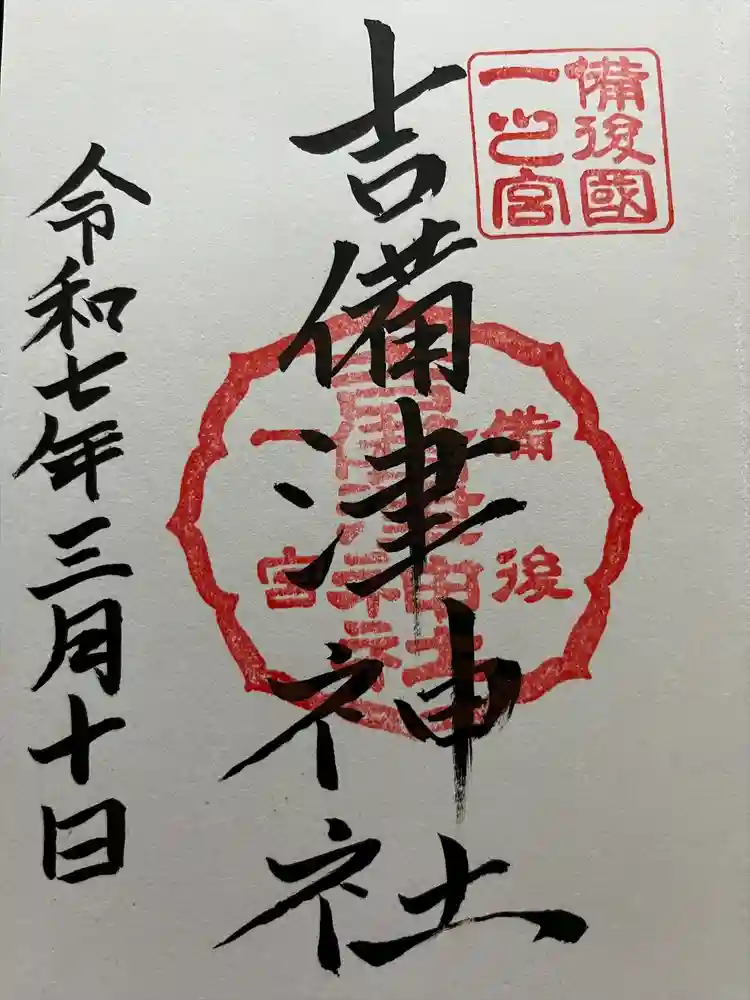 備後國
一之宮
吉備津神社
備後
一宮
吉備津神社
令和七年三月十日